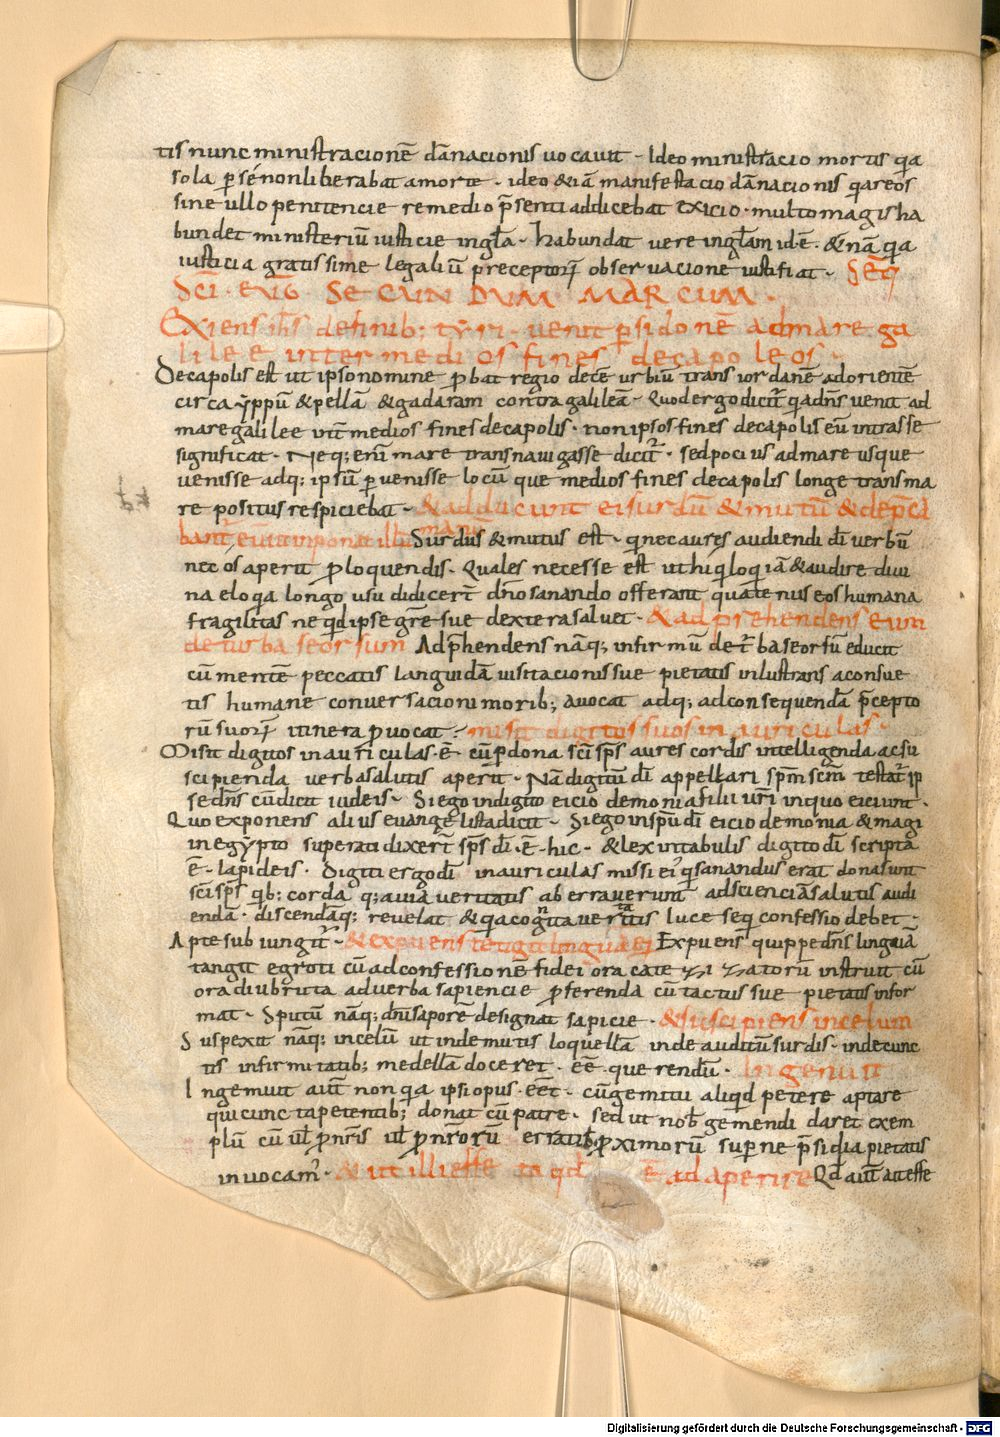 tis nunc ministracionē dānacionis uocauit · Ideo ministracio mortis q̄a
sola p̄ se nonliberabat amorte · ideo &iā manifestacio dānacionis q̄a reos
sine ullo penitencie remedio p̄senti addicebat exicio · multo magis ha
bundet ministeriū iusticie ingl̄a · habundat uere ingl̄am idē · &nā q̄a
iusticia gratissime legaliū preceptor̄ obseruacione iustifiat · Seq̄
Sc̄i · euḡ Secundum Marcum ·
Exiens ih̄s definib; tyri · uenit p̄ sidonē admare ga
lilee inter medios fines decapoleos ·
Decapolis est ut ipso nomine p̄bat regio decē urbiū trans iordanē adorientē
circa yppū &pellā &gadaram contra galileā · Quod ergo dicit̄ q̄a dn̄s uenit ad
mare galilee int̄ medios fines decapolis · non ipsos fines decapolis eū intrasse
significat · Neq; eni mare transnauigasse dicit̄ · sed pocius admare usque
uenisse adq; ipsū puenisse locū que medios fines decapolis longe transma
re positus respiciebat · &adducunt ei surdū &mutū &dep̄ca
bant̄ eū ut inponat illi manū Surdus &mutus est · qi nec aures audiendi di uerbū
nec os aperit p̄ loquendis · Quales necesse est ut hi qi loqi iā &audire diui
na eloq̄a longo usu didicert̄ dn̄o sanando offerant quatenus eos humana
fragilitas nequid ipse gr̄e sue dextera saluet · &adprehendens eum
de turba seorsum Adp̄hendens nāq; infirmū de t̄ba seorsū educit
cū mentē peccatis languidā uisitacionis sue pietatis inlustrans aconsue
tis humane conuersacioni morib; auocat adq; adconsequenda p̄cepto
rū suor̄ itinera p̄uocat · misit digitos suos in auriculas ·
Misit digitos in auriculas · ē eū p dona sc̄i sp̄s aures cordis intelligenda ac su
scipienda uerba salutis aperit · Nā digitū di appellari sp̄m sc̄m testat̄ ip
se dn̄s cū dicit iudeis · Si ego in digito eicio demonia filii ur̄i in quo eiciunt ·
Quo exponens alius euangelista dicit · Si ego in spū di eicio demonia &magi
in egypto superati dixert̄ sp̄s di · ē · hic · &lex in tabulis digito di scripta
ē · lapideis · Digiti ergo di in auriculas missi ei qi sanandus erat dona sunt
sc̄i sp̄s qb; corda q; auia ueritatis aberrauerunt adscienciā salutis audi
endā · discendāq; reuelat &q̄a cognita ueritatis luce seqi confessio debet ·
Apte subiungit̄ · &expuens tetigit linguā ei Expuens quippe dn̄s linguā
tangit egroti cū adconfessionē fidei ora instruit cū
ora diu bruta aduerba sapiencie p̄ferenda cū tactu sue pietatis infor
mat · Sputū nāq; dn̄i saporē designat sapicie · &suscipiens incelum
Suspexit nāq; incelū ut inde mutis loquellā inde auditū surdis · inde cunc
tis infirmitatib; medellā doceret · eē · querendū · Ingemuit
Ingemuit aut̄ non q̄a ipsi opus · eēt · cū gemitu aliqd petere a patre
qui cuncta petentib; donat cū patre · sed ut nob̄ gemendi daret exem
plū cū ul̄ p̄ nr̄is ul̄ p̄ nr̄orū erratib; p̄ximorū superne p̄sidia pietatis
inuocam̄ · & ait illi effe ta qd̄ ē adaperire Qd̄ aut̄ ait effe
Digitalisierung gefördert durch die Deutsche Forschungsgemeinschaft - DFG